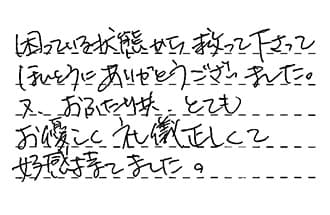 困っている状態から救って下さって
ほんとうにありがとうございました。
又、おふたり共、とても
お優しく礼儀正しくて
好感持てました。